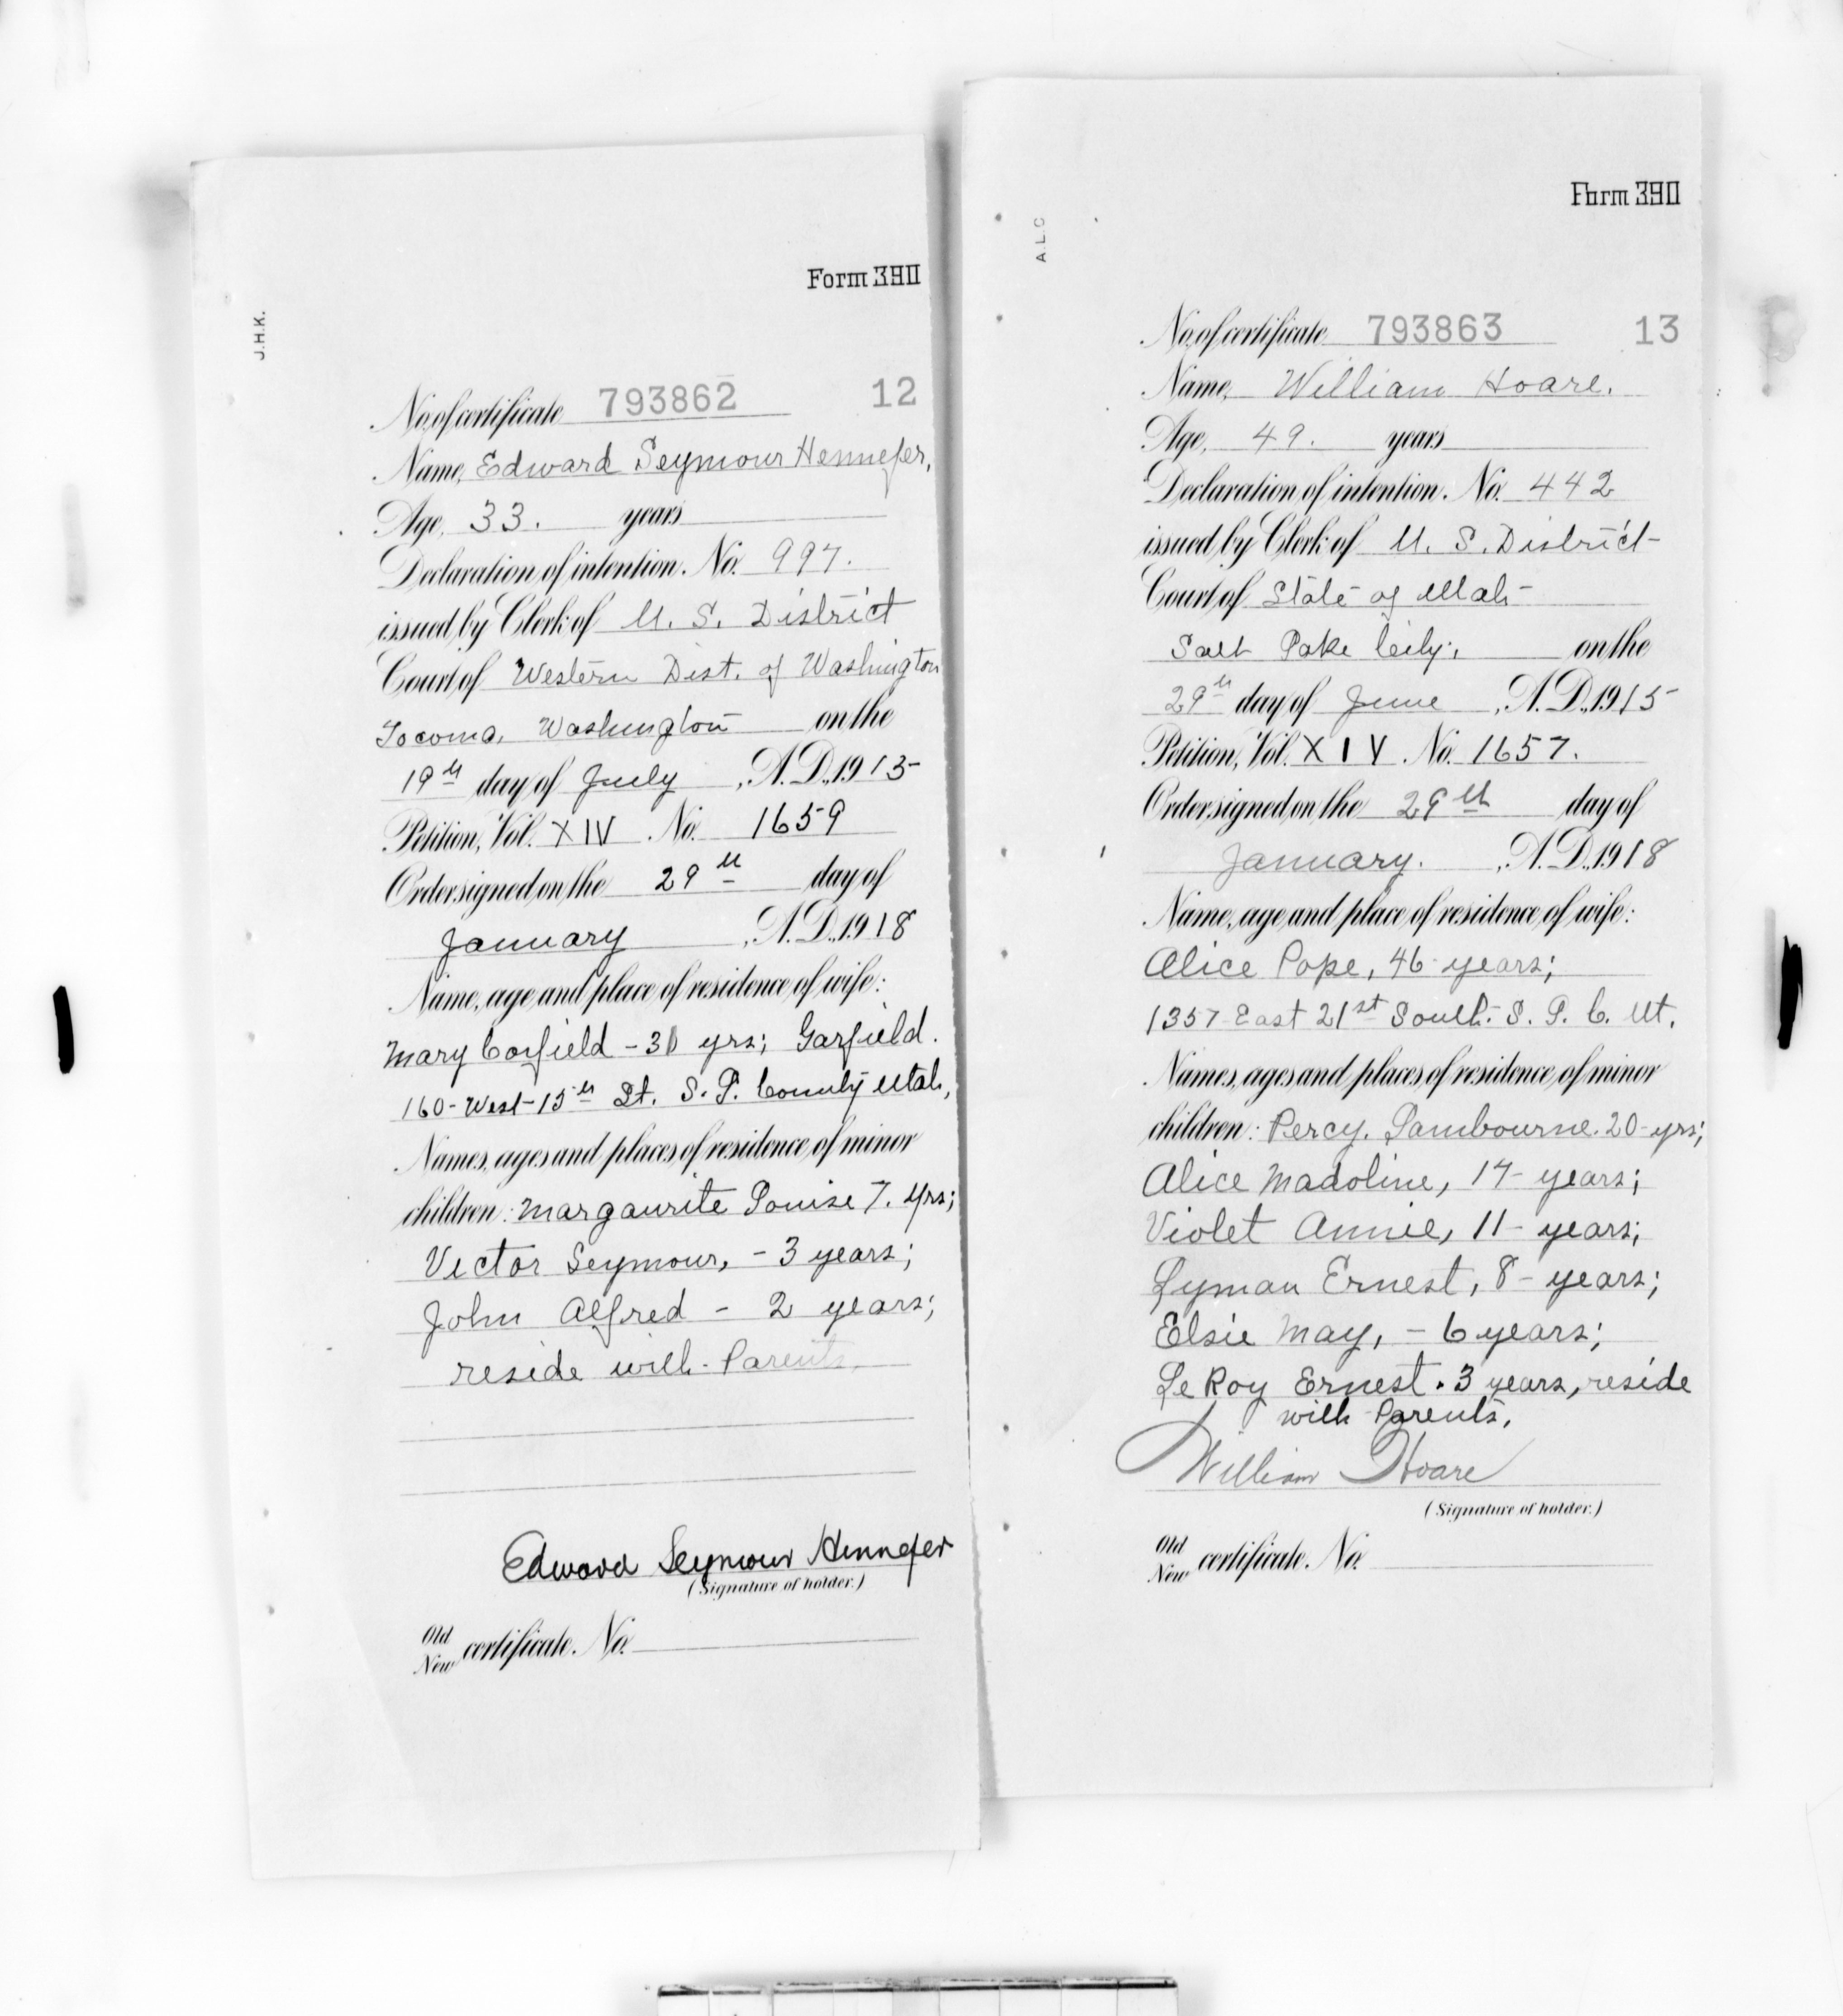 J.H.K.
Form 390
No. of certificate 793862 12
Name, Edward Seymour Hennefer,
Age, 33. years
Declaration of intention. No. 997.
issued by Clerk of U. S. District
Court of Western Dist. of Washington
Tocoma, Washington on the
19th day of July, A.D., 1915
Petition, Vol. XIV No. 1659
Order signed on the 29th day of
January, A.D., 1918
Name, age and place of residence of wife:
Mary Corfield - 31 yrs; Garfield.
160-West-15th St. S. L. County Utah,
Names, ages and places of residence of minor
children: Margaurite Louise 7. yrs;
Victor Seymour, - 3 years;
John Alfred - 2 years;
reside with Parents.
Edward Seymour Hennefer
(Signature of holder.)
Old
New certificate. No.
A.L.C
Form 390
No. of certificate 793863 13
Name, William Hoare.
Age, 49. years
Declaration of intention. No. 442
issued by Clerk of U. S. District
Court of State of Utah
Salt Lake City, on the
29th day of June, A.D., 1915
Petition, Vol. XIV. No. 1657.
Order signed on the 29th day of
January., A.D., 1918
Name, age and place of residence of wife:
Alice Pope, 46 years;
1357 East 21st South. S. L. C. Ut.
Names, ages and places of residence of minor
children: Percy. Lambourne. 20-yrs;
Alice Madoline, years;
Violet Annie, 11- years;
Lyman Ernest, 8- years;
Elsie May, - 6 years;
Le Roy Ernest. 3 years, reside
with Parents,
William Hoare
(Signature of holder.)
Old
New certificate. No.